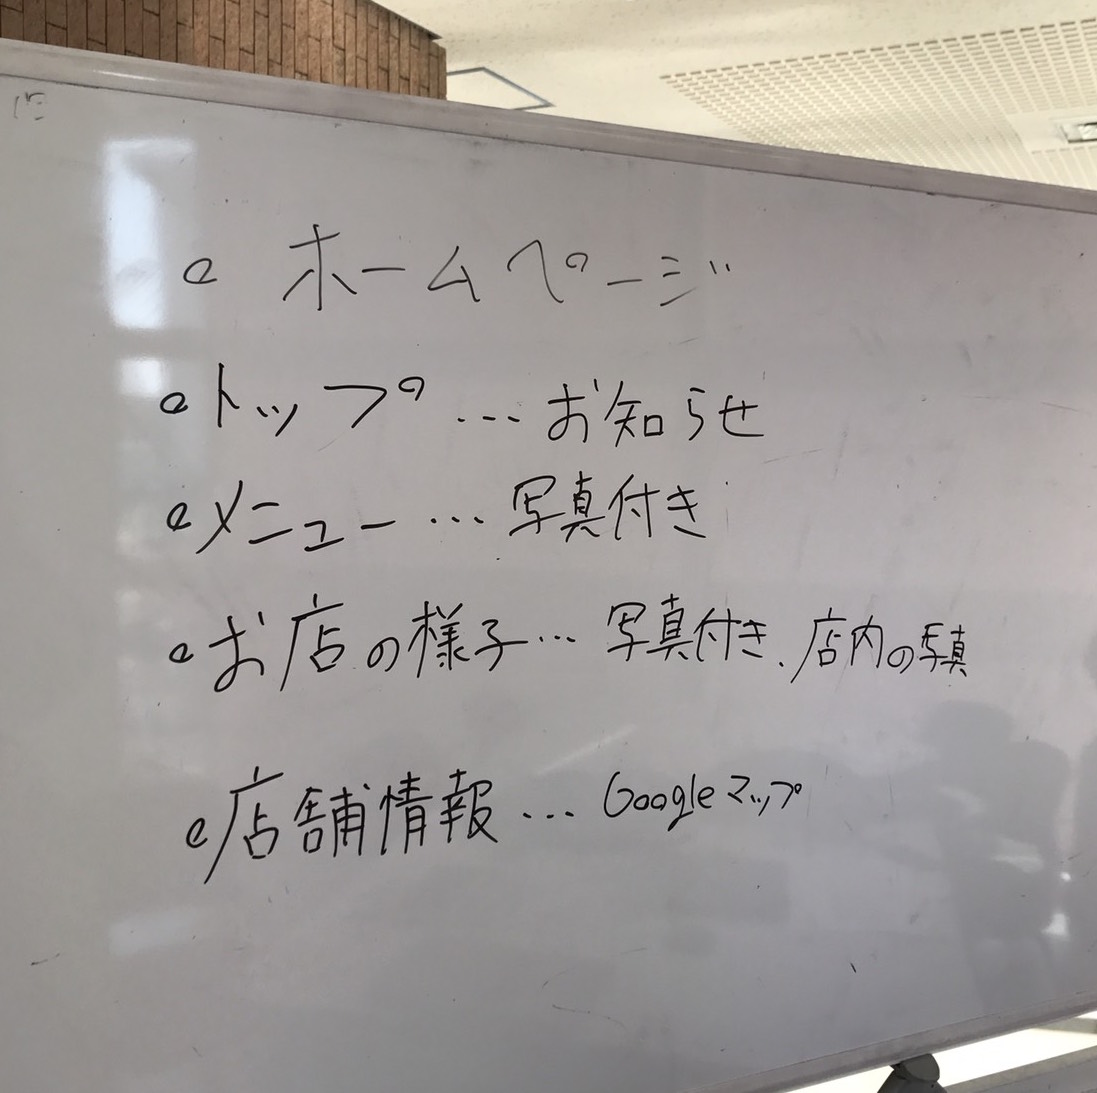 • ホームページ
• トップ … お知らせ
• メニュー … 写真付き
• お店の様子 … 写真付き、店内の写真
• 店舗情報 … Googleマップ